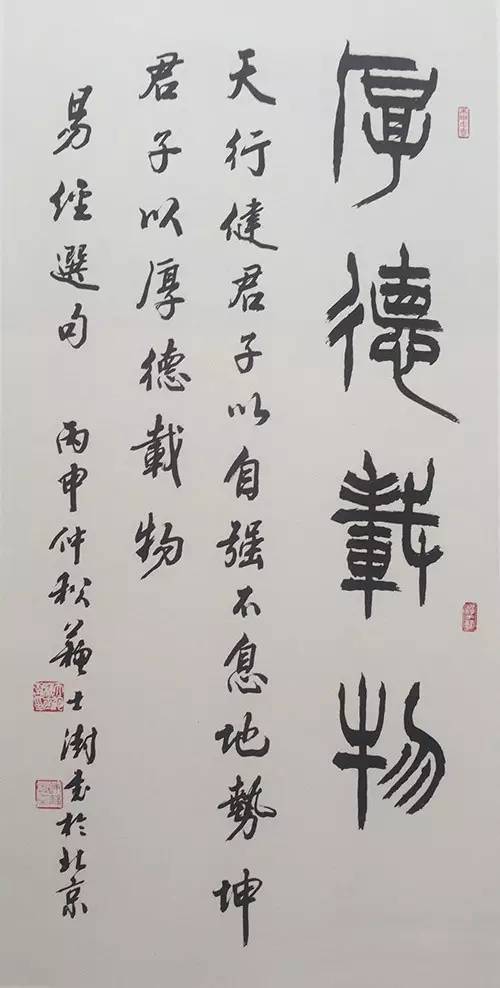 厚德載物
天行健君子以自強不息地勢坤
君子以厚德載物
易經選句 丙申仲秋蘇士澍書於北京